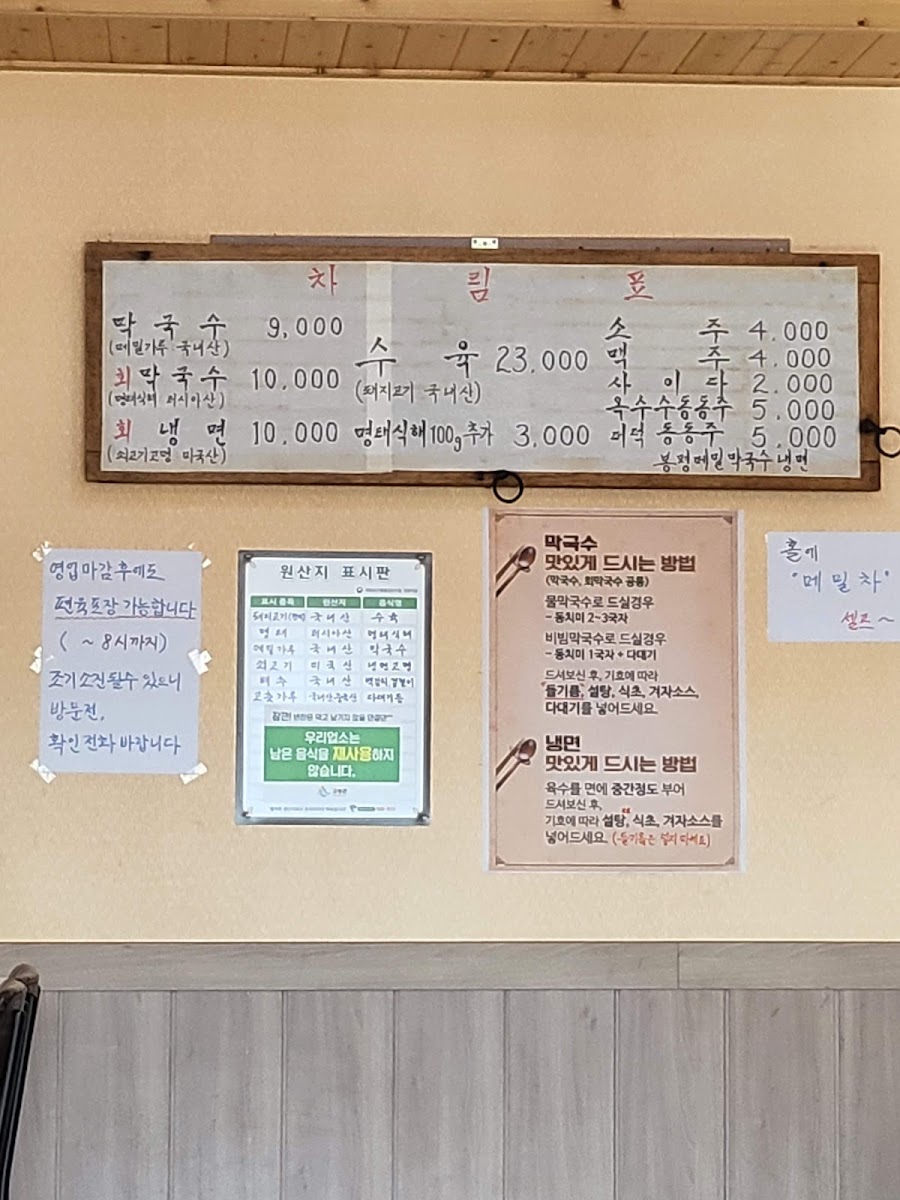 차 림 표
막국수 9,000
(메밀가루 국내산)
회막국수 10,000
(명태식해 러시아산)
회 냉면 10,000
(쇠고기고명 미국산)
수 육 23,000
(돼지고기 국내산)
명태식해 100g추가 3,000
소 주 4.000
맥 주 4.000
사 이 다 2.000
옥수수동동주 5.000
더덕 동동주 5.000
봉평메밀막국수냉면
영업마감후에도
편육포장 가능합니다
( ~ 8시까지)
조기소진될수 있으니
방문전,
확인전화 바랍니다
원산지 표시판
표시 품목 원산지 음식명
국내산 수육
명태 러시아산 명태식해
메밀가루 국내산 막국수
쇠고기 미국산 냉면고명
배추 국내산
고춧가루 다대기등
우리업소는
남은 음식을 재사용하지
않습니다.
막국수
맛있게 드시는 방법
(막국수, 회막국수 공통)
물막국수로 드실경우
- 동치미 2~3국자
비빔막국수로 드실경우
- 동치미 1국자 + 다대기
드셔보신 후, 기호에 따라
들기름, 설탕, 식초, 겨자소스,
다대기를 넣어드세요.
냉면
맛있게 드시는 방법
육수를 면에 중간정도 부어
드셔보신 후,
기호에 따라 설탕, 식초, 겨자소스를
넣어드세요. (들기름은 넣지 마세요)
홀에
"메밀차"
셀프~